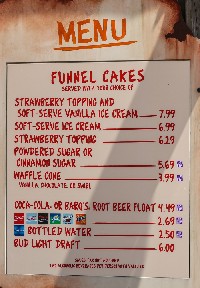 MENU
FUNNEL CAKES
SERVED WITH YOUR CHOICE OF
STRAWBERRY TOPPING AND
SOFT-SERVE VANILLA ICE CREAM 7.99
SOFT-SERVE ICE CREAM 6.99
STRAWBERRY TOPPING 6.29
POWDERED SUGAR OR
CINNAMON SUGAR 5.69
WAFFLE CONE 3.99
VANILLA, CHOCOLATE OR SWIRL
COCA-COLA OR BARQ'S ROOT BEER FLOAT 4.49
2.69
BOTTLED WATER 2.50
BUD LIGHT DRAFT 6.00